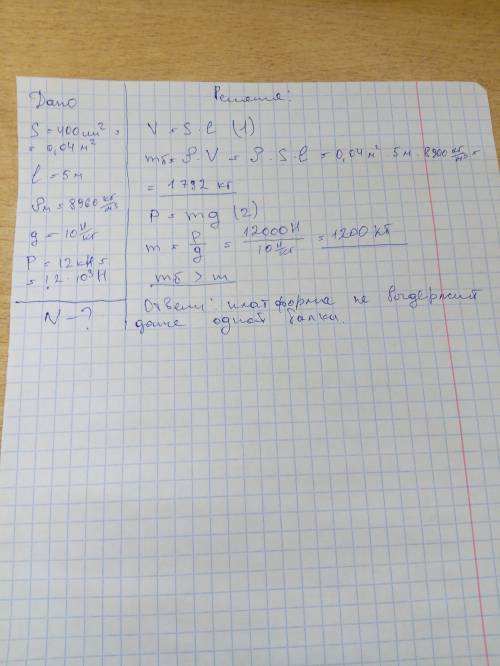 Дано
Решение:
S = 400 см² =
= 0,04 м²
l = 5 м
ρм = 8960 кг/м³
g = 10 Н/кг
P = 12 кН =
= 12 · 10³ Н
N - ?
V = S · l (1)
mб = ρ · V = ρ · S · l = 0,04 м² · 5 м · 8900 кг/м³ =
= 1792 кг
P = mg (2)
m = P/g = 12000 Н / 10 Н/кг = 1200 кг
mб > m
Ответ: платформа не выдержит
даже одной балки.